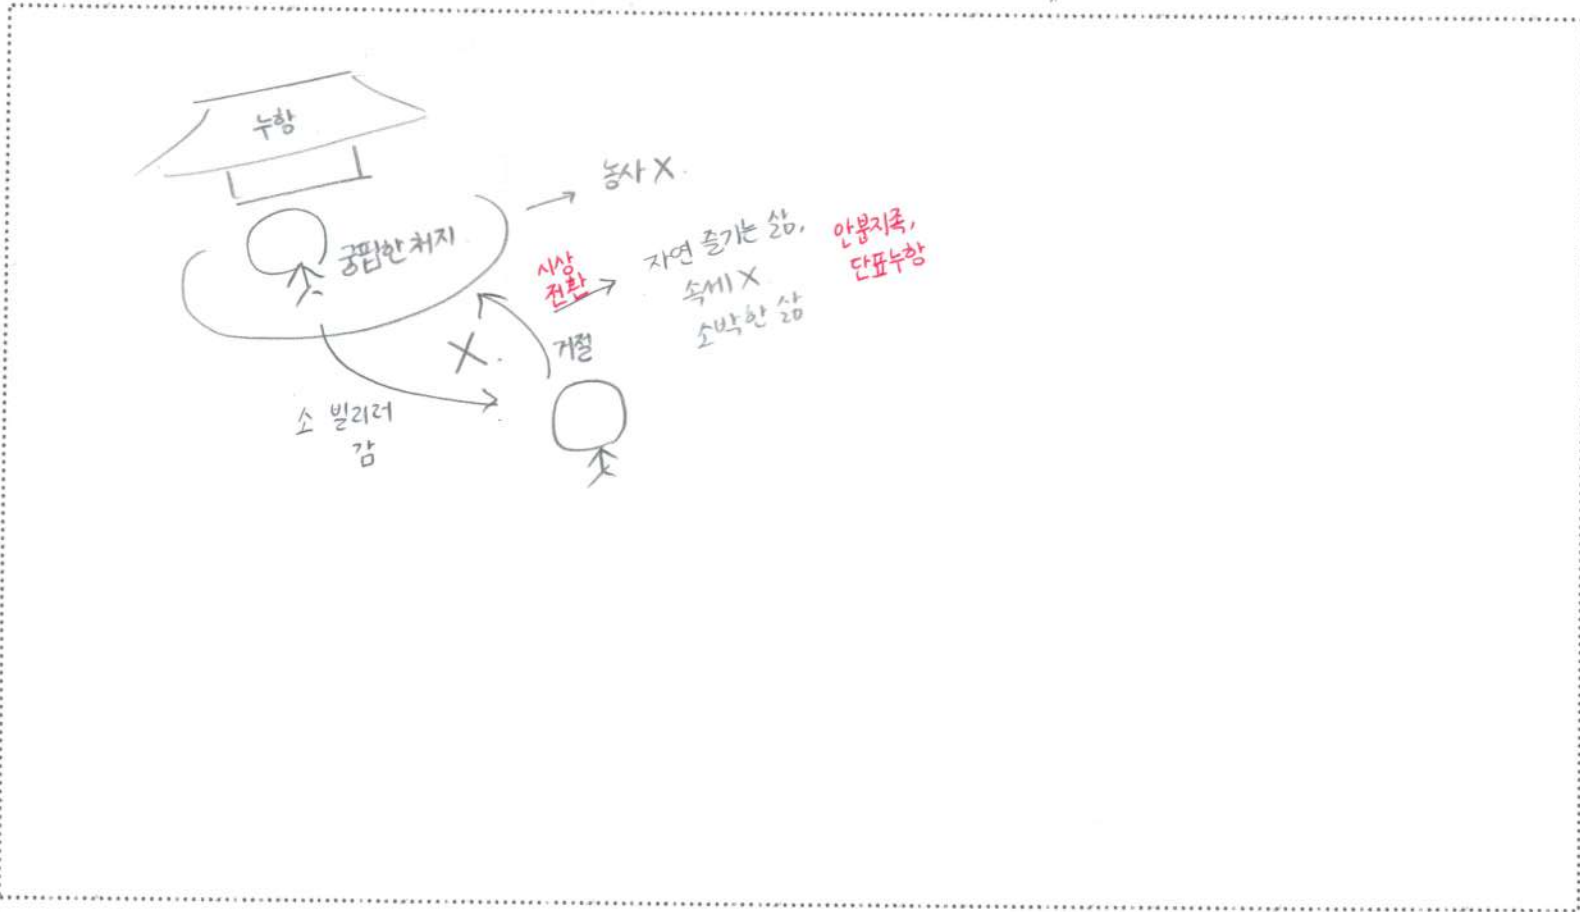 누항
농사 X.
궁핍한 처지
시상
전환
자연 즐기는 삶,
속세 X
소박한 삶
안분지족,
단표누항
X.
거절
소 빌리러
감